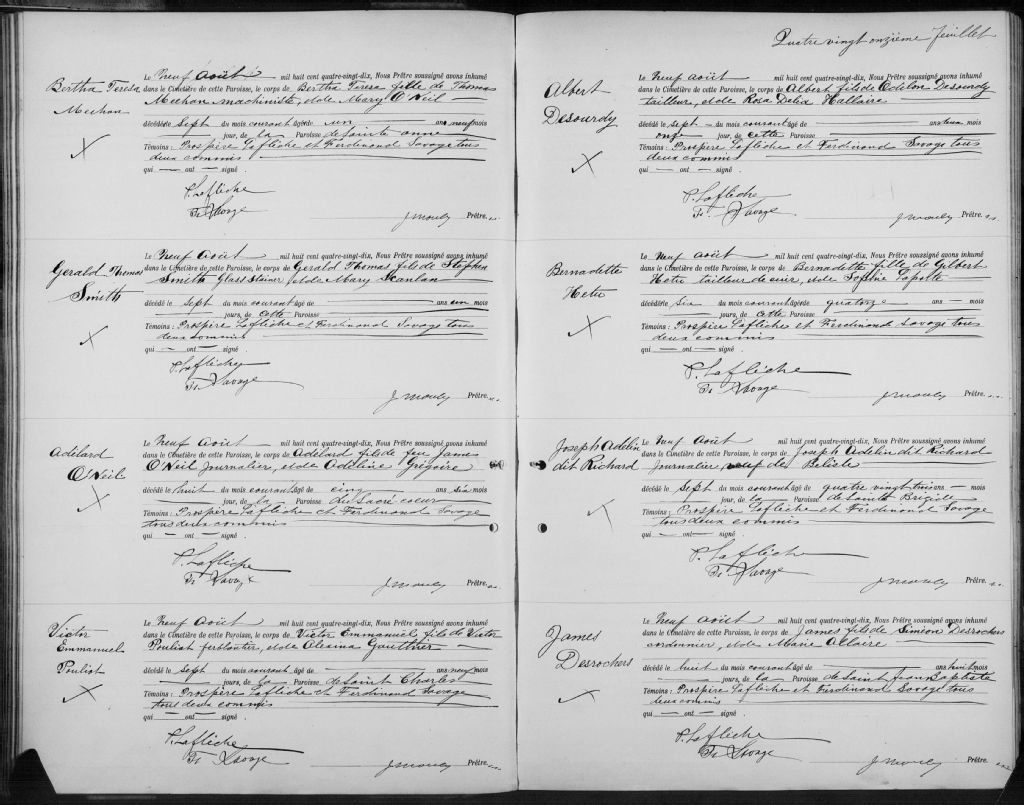 Bertha Teresa
Meehan
Le Neuf Août mil huit cent quatre-vingt-dix, Nous Prêtre soussigné avons inhumé
dans le Cimetière de cette Paroisse, le corps de Bertha Teresa fille de Thomas
Meehan machiniste, et de Mary O'Neil
décédé le sept du mois courant âgée de un an neuf mois
jour, de la Paroisse de Sainte Anne
Témoins : Prospère Laflèche et Ferdinand Savage tous
deux commis
qui — ont — signé
P. Laflèche
Fd Savage
J Mouly Prêtre
Gerald Thomas
Smith
Le Neuf Août mil huit cent quatre-vingt-dix, Nous Prêtre soussigné avons inhumé
dans le Cimetière de cette Paroisse, le corps de Gerald Thomas fils de Stephen
Smith Glass Stainer et de Mary Scanlan
décédé le sept du mois courant âgé de ans un mois
jours, de cette Paroisse
Témoins : Prospère Laflèche et Ferdinand Savage tous
deux commis
qui — ont — signé
P. Laflèche
Fd Savage
J Mouly Prêtre
Adelard
O'Neil
Le Neuf Août mil huit cent quatre-vingt-dix, Nous Prêtre soussigné avons inhumé
dans le Cimetière de cette Paroisse, le corps de Adelard fils de feu James
O'Neil Journalier, et de Adéline Grégoire
décédé le huit du mois courant âgé de cinq ans six mois
jours, de la Paroisse du Sacré coeur
Témoins : Prospère Laflèche et Ferdinand Savage
tous deux commis
qui — ont — signé
P. Laflèche
Fd Savage
J Mouly Prêtre
Victor
Emmanuel
Pouliot
Le Neuf Août mil huit cent quatre-vingt-dix, Nous Prêtre soussigné avons inhumé
dans le Cimetière de cette Paroisse, le corps de Victor Emmanuel fils de Victor
Pouliot ferblantier, et de Alexina Gauthier
décédé le sept du mois courant âgé de ans neuf mois
jours, de la Paroisse de Saint Charles
Témoins : Prospère Laflèche et Ferdinand Savage
tous deux commis
qui — ont — signé
P. Laflèche
Fd Savage
J Mouly Prêtre
Quatre vingt onzième feuillet
Albert
Desourdy
Le Neuf août mil huit cent quatre-vingt-dix, Nous Prêtre soussigné avons inhumé
dans le Cimetière de cette Paroisse, le corps de Albert fils de Odilon Desourdy
tailleur, et de Rosa Delia Hallaire
décédé le sept du mois courant âgé de ans deux mois
onze jour, de cette Paroisse
Témoins : Prospère Laflèche et Ferdinand Savage tous
deux commis
qui — ont — signé
P. Laflèche
Fd Savage
J Mouly Prêtre
Bernadette
Hetu
Le Neuf août mil huit cent quatre-vingt-dix, Nous Prêtre soussigné avons inhumé
dans le Cimetière de cette Paroisse, le corps de Bernadette fille de Gilbert
Hetu tailleur de cuir, et de Sophie Lapotte
décédé le six du mois courant âgé de quatorze ans — mois
jours, de cette Paroisse
Témoins : Prospère Laflèche et Ferdinand Savage tous
deux commis
qui — ont — signé
P. Laflèche
Fd Savage
J Mouly Prêtre
Joseph Adelin
dit Richard
Le Neuf Août mil huit cent quatre-vingt-dix, Nous Prêtre soussigné avons inhumé
dans le Cimetière de cette Paroisse, le corps de Joseph Adelin dit Richard
Journalier veuf de Belisle
décédé le sept du mois courant âgé de quatre vingt trois ans — mois
jour, de la Paroisse de Sainte Brigide
Témoins : Prospère Laflèche et Ferdinand Savage
tous deux commis
qui — ont — signé
P. Laflèche
Fd Savage
J Mouly Prêtre
James
Desrochers
Le Neuf août mil huit cent quatre-vingt-dix, Nous Prêtre soussigné avons inhumé
dans le Cimetière de cette Paroisse, le corps de James fils de Siméon Desrochers
cordonnier, et de Marie Allaire
décédé le huit du mois courant âgé de ans huit mois
jours, de la Paroisse de Saint Jean Baptiste
Témoins : Prospère Laflèche et Ferdinand Savage tous
deux commis
qui — ont — signé
P. Laflèche
Fd Savage
J Mouly Prêtre